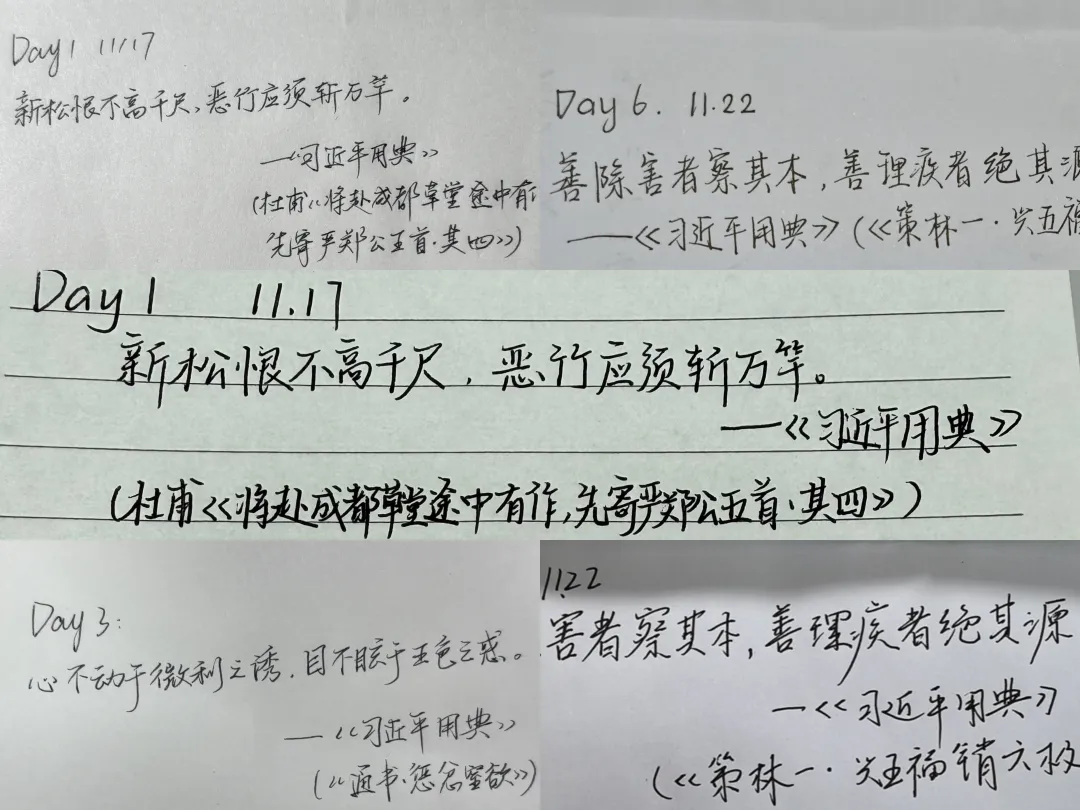 Day 1 11/17
新松恨不高千尺,恶竹应须斩万竿。
—《习近平用典》
(杜甫《将赴成都草堂途中有
先寄严郑公五首·其四》)
Day 6. 11.22
善除害者察其本,善理疾者绝其源
——《习近平用典》(《策林一·兴五福
Day 1 11.17
新松恨不高千尺,恶竹应须斩万竿。
—《习近平用典》
(杜甫《将赴成都草堂途中有作,先寄严郑公五首·其四》)
Day 3:
心不动于微利之诱,目不眩于五色之惑。
—《习近平用典》
(《通书·惩忿窒欲》)
11.22
害者察其本,善理疾者绝其源
—《习近平用典》
(《策林一·兴五福销六极